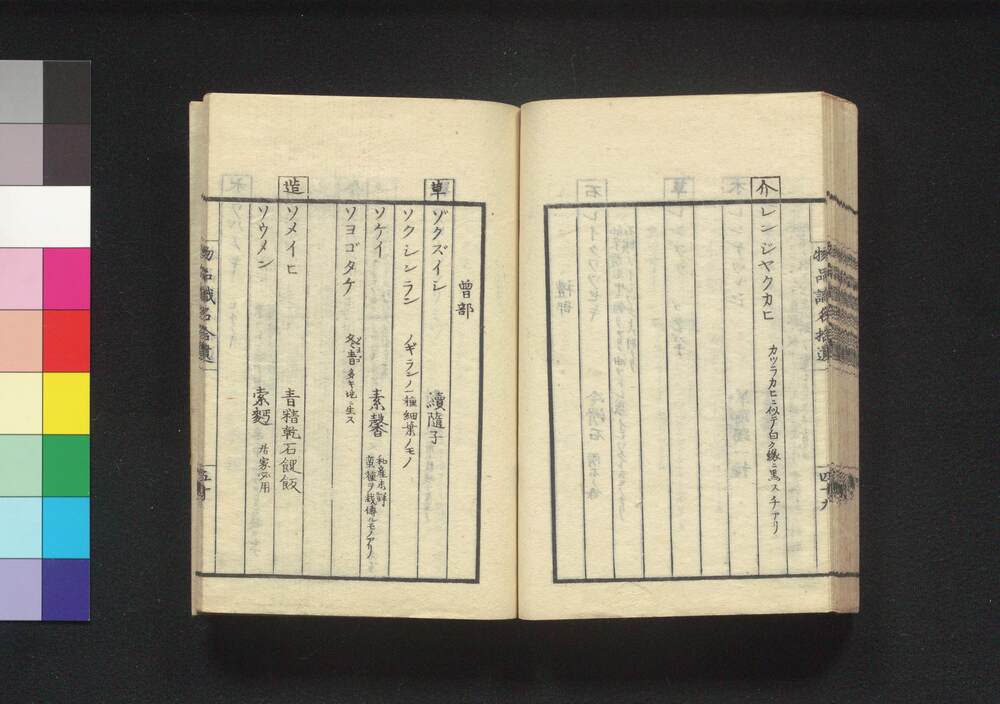 物品識名拾遺
四十九
介
レンジヤクカヒ
カツラカヒニ似テ白ク縁ニ黒スチアリ
曾部
草
ゾクズイシ
續隨子
ソクシンラン
ノギランノ一種細葉ノモノ
ソケイ
素馨
和産未詳
ソヨゴタケ
冬青多キ地ニ生ス
造
ソメイヒ
青精乾石䭊飯
ソウメン
索麪
居家必用
物品識名拾遺
五十